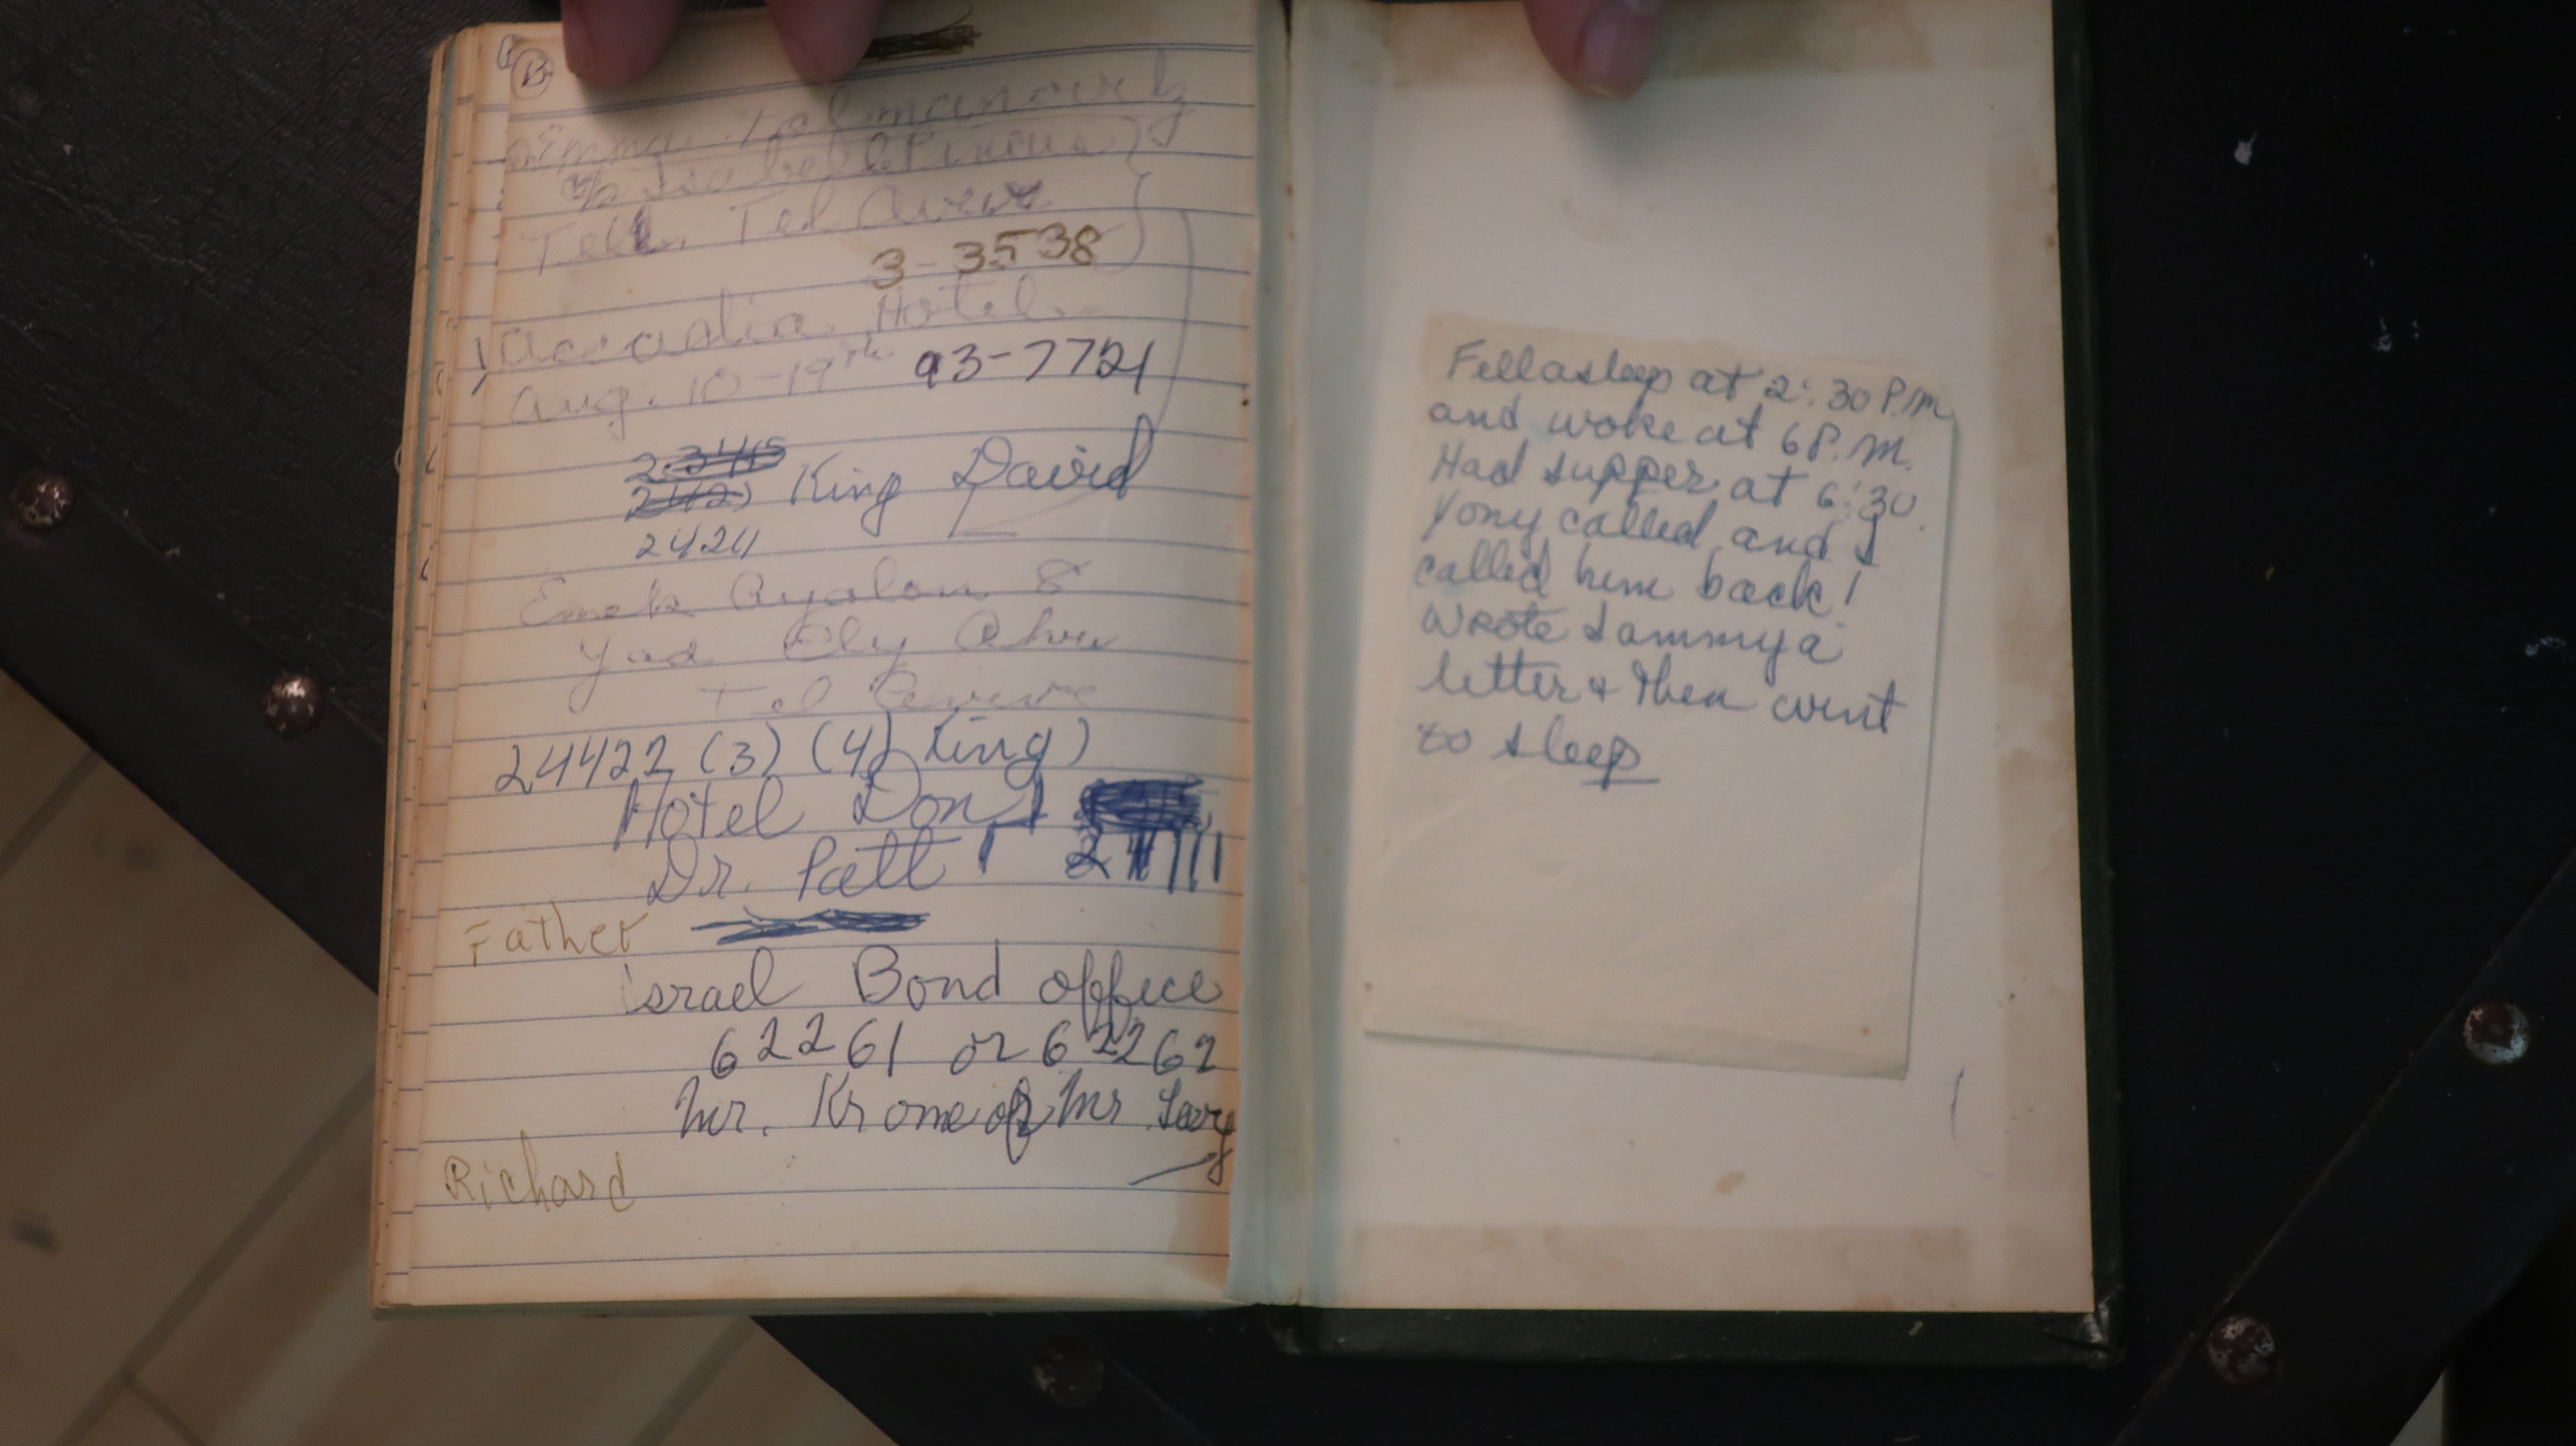 B
Emma Talmanovitz
c/o Isabel Pincus
Tell. Tel Aviv
3-3538
Accadia Hotel
Aug. 10-19th 93-7721
King David
2424
Emek Ayalon 8
Yad Ely Ahu
Tel Aviv
24422 (3) (4) King)
Hotel Don
Dr. Patt
Father
Israel Bond office
62261 or 62262
Mr. Krone or Mr Levy
Richard
Fell asleep at 2:30 P.M
and woke at 6 P.M.
Had supper at 6:30.
Yony called and I
called him back!
Wrote Sammy a
letter & then went
to sleep